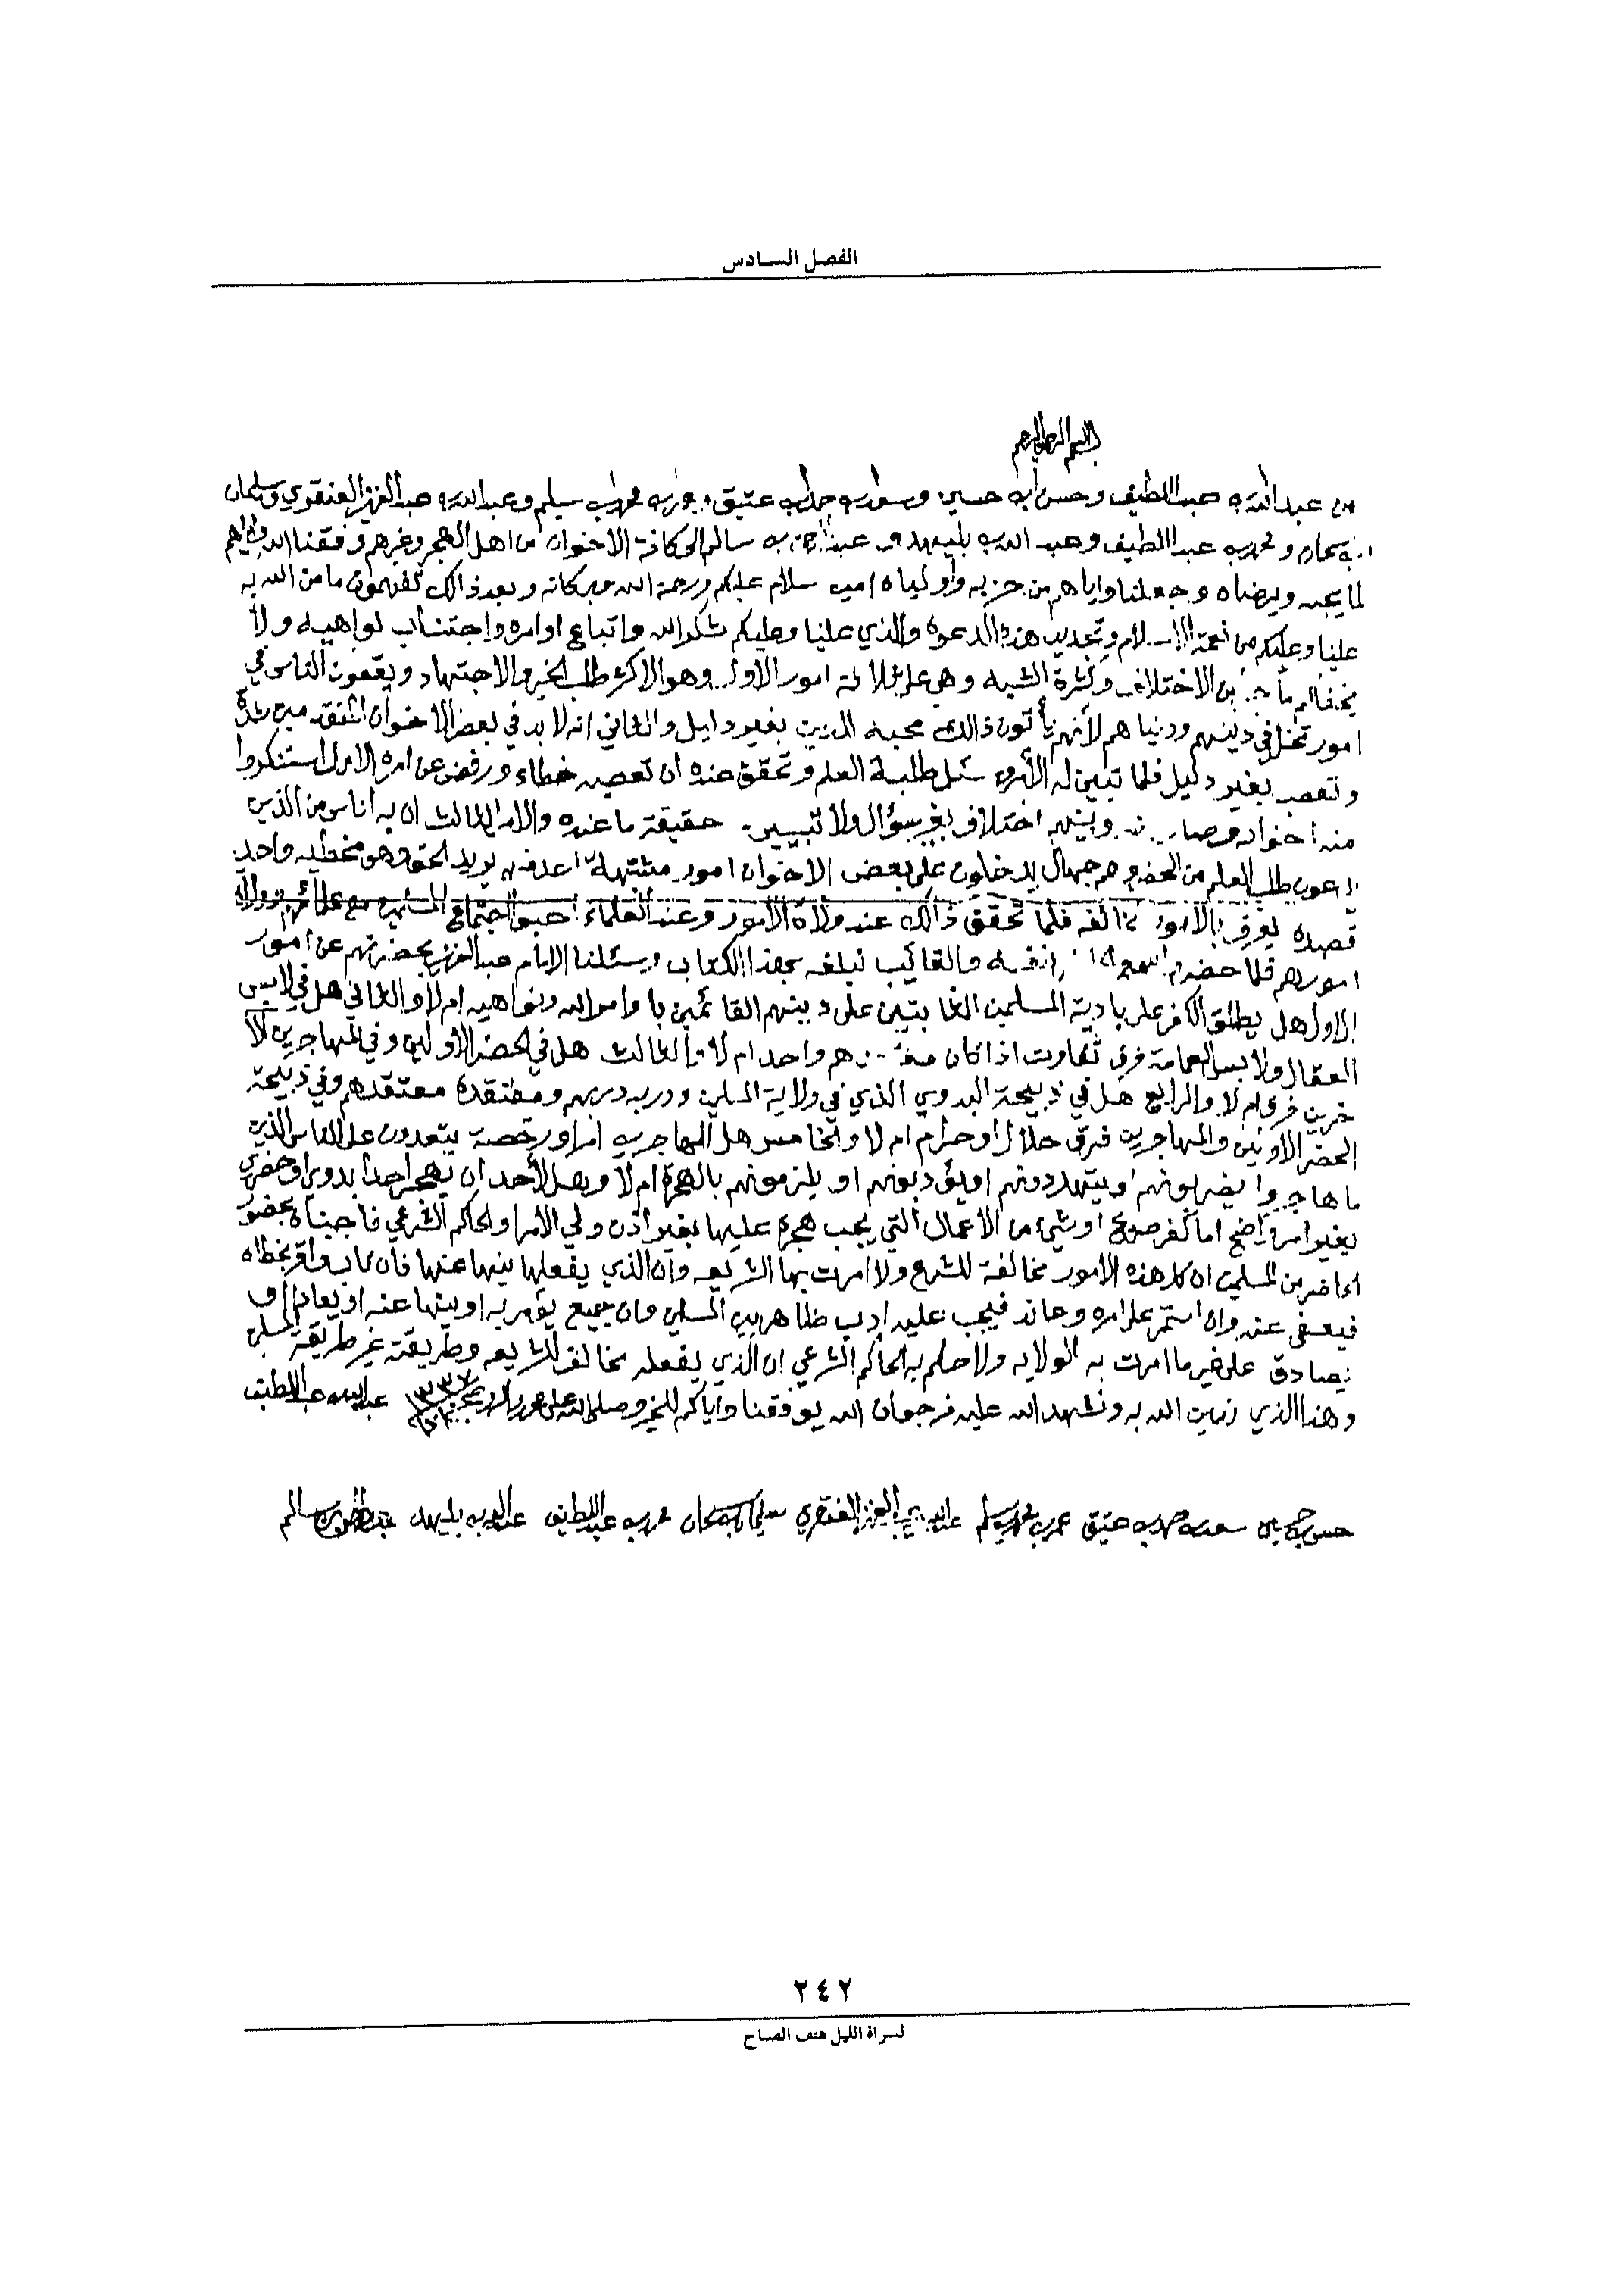 الفصل السادس
بسم الله الرحمن الرحيم
من عبدالله بن عبداللطيف وحسن بن حسين وسعد بن حمد بن عتيق وعمر بن محمد بن سليم وعبدالله بن عبدالعزيز العنقري وسليمان
بن سحمان ومحمد بن عبداللطيف وعبدالله بن بليهد وعبدالرحمن بن سالم الى كافة الاخوان من اهل الهجر وغيرهم وفقنا الله واياهم
لما يحبه ويرضاه وجعلنا واياهم من حزبه واولياه امين سلام عليكم ورحمة الله وبركاته وبعد ذالك تفهمون ما من الله به
علينا وعليكم من نعمة الاسلام وتجديد هذه الدعوة والذي علينا وعليكم شكر الله واتباع اوامره واجتناب نواهيه ولا
يخفاكم ما من الاختلاف وكثرة الشبه وهي على ثلاثة امور الاول وهو الاكثر طلب الخير والاجتهاد ويقعون الناس في
امور تخل في دينهم ودنياهم لأنهم يأتون ذالك محبة للدين بغير دليل والثاني انه لا بد في بعض الاخوان المتقدمين شدة
وتعصب بغير دليل فلما تبين له الأمر سئل طلبة العلم وتحقق عنده ان تعصبه خطاء ورفض عن امره الاول استنكروا
منه اخوانه وصار بينه وبينهم اختلاف بغير سؤال ولا تبيين حقيقة ما عنده والامر الثالث ان به اناس من الذين
يدعون طلب العلم من الحضر وهم جهال يدخلون على بعض الاخوان امور مشتبهة احد منهم يريد الحق وهو مخطيه واحد
قصده يفرق بالامور مخالفه فلما تحقق ذالك عند ولاة الامور وعند العلماء احبوا اجتماع المسلمين مع علمائهم وولاة
امورهم فلما حضرم والغايب نبلغه بهذا الكتاب وسئلنا الامام عبدالعزيز بحضرتهم عن امور
الاول هل يطلق الكفر على بادية المسلمين الثابتين على دينهم القائمين باوامر الله ونواهيه ام لا والثاني هل في لابس
العقال ولابس العمامة فرق تفاوت اذا كان معتقدهم واحد ام لا والثالث هل في الحضر الاولين وفي المهاجرين الا
خرين فرق ام لا والرابع هل في ذبيحة البدوي الذي في ولاية المسلمين ودربه دربهم ومعتقده معتقدهم وفي ذبيحة
الحضر الاولين والمهاجرين فرق حلال او حرام ام لا والخامس هل للمهاجرين امر او رخصة يتعدون على الناس الذين
ما هاجروا يضربونهم او يتهددونهم او يؤدبونهم او يلزمونهم بالهجرة ام لا وهل لأحد ان يهجر احدا بدوي او حضري
بغير امر واضح اما كفر صريح او شيء من الاعمال التي يجب هجره عليها بغير اذن ولي الأمر او الحاكم الشرعي فأجبناه بحضور
الحاضرين من المسلمين ان كل هذه الامور مخالفة للشرع ولا امرت بها الشريعه وان الذي يفعلها ينها عنها فان تاب واقر بخطاه
فيعفى عنه وان استمر على امره وعاند فيجب عليه ادب ظاهر بين المسلمين وان جميع يؤمر به او ينها عنه او يعادا او
يصادق على غير ما امرت به الولايه ولا حكم به الحاكم الشرعي ان الذي يفعله مخالف للشريعه وطريقته غير طريقة المسلمين
وهذا الذي ندين الله به ونشهد الله عليه نرجوا ان الله يوفقنا واياكم للخير وصلى الله على محمد ١٣٣٧ عبدالله بن عبداللطيف
حسن بن حسين سعد بن حمد بن عتيق عمر بن محمد بن سليم عبدالله بن عبدالعزيز العنقري سليمان بن سحمان محمد بن عبداللطيف عبدالله بن بليهد عبدالرحمن بن سالم
٢٤٢
لسراة الليل هتف الصباح